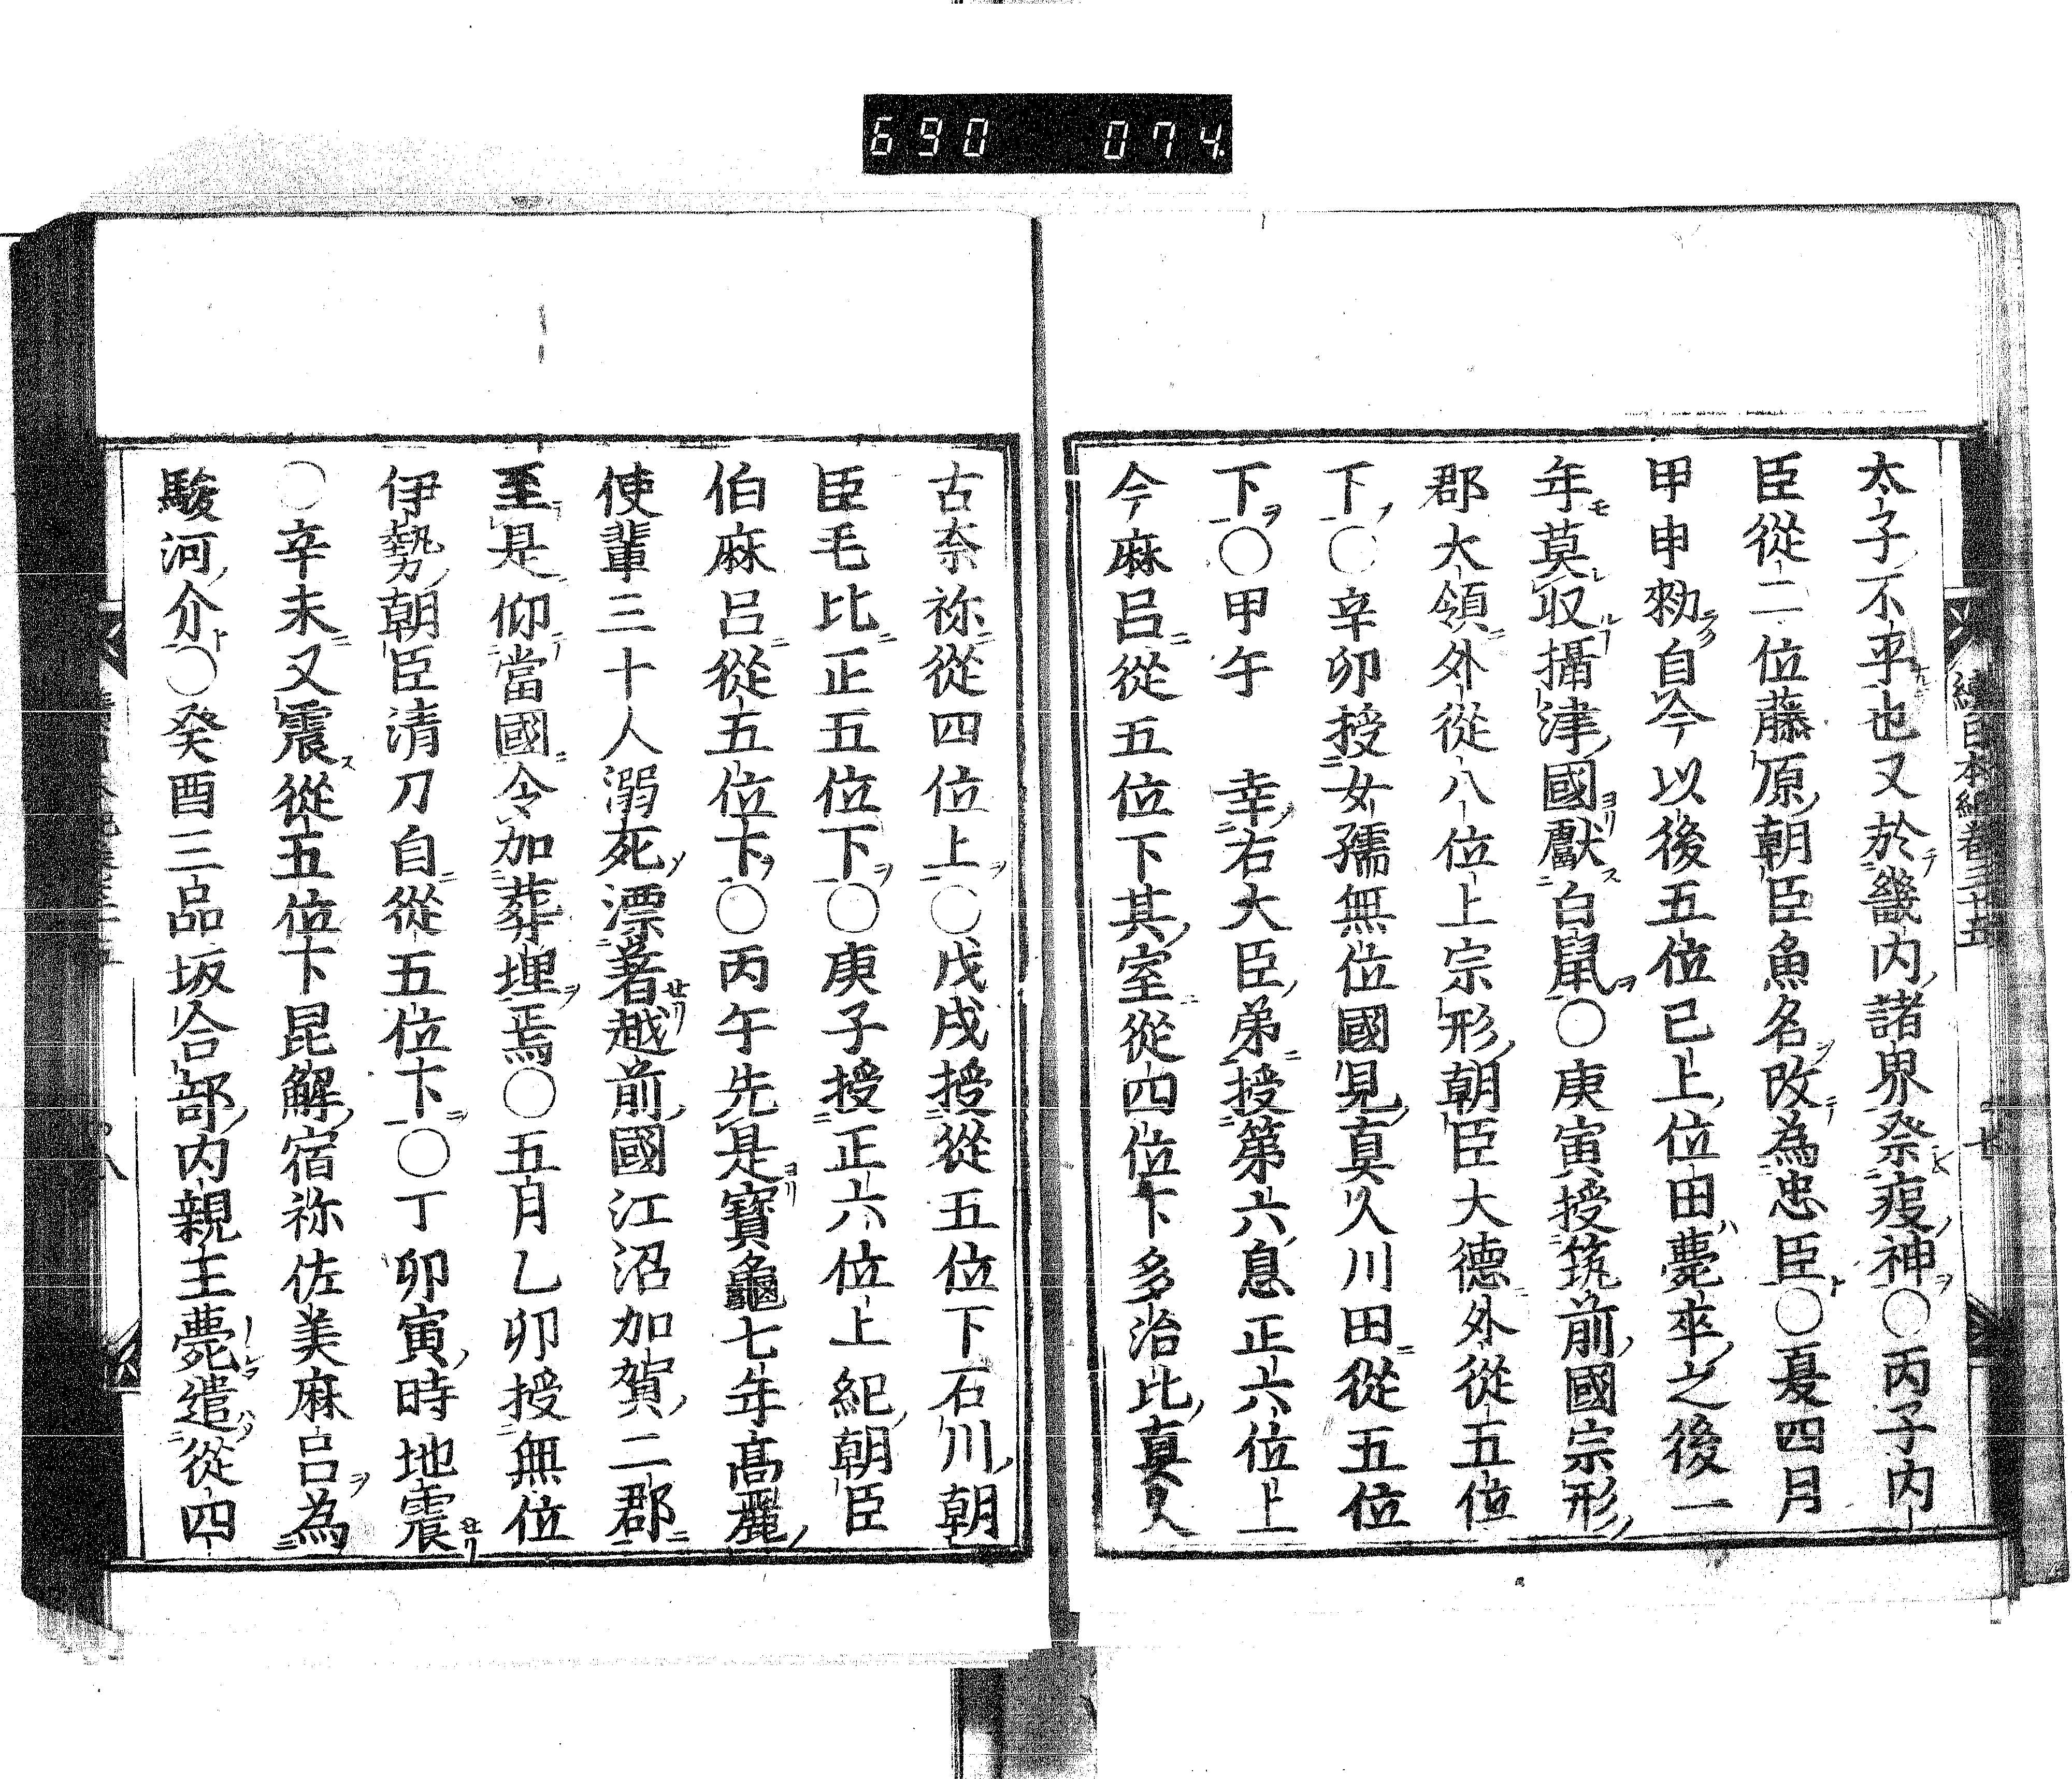 690 074
續日本紀卷三十五
廿
太子不平也又於畿内諸界祭疫神〇丙子内
臣從二位藤原朝臣魚名改為忠臣〇夏四月
甲申勑自今以後五位已上位田薨卒之後一
年莫収攝津國獻白鼠〇庚寅授筑前國宗形
郡大領外從八位上宗形朝臣大德外從五位
下〇辛卯授女孺無位國見真人川田從五位
下〇甲午　幸右大臣弟授第六息正六位上
今麻呂從五位下其室從四位下多治比真人
古奈祢從四位上〇戊戌授從五位下石川朝
臣毛比正五位下〇庚子授正六位上紀朝臣
伯麻呂從五位下〇丙午先是寶龜七年髙麗
使輩三十人溺死漂著越前國江沼加賀二郡
至是仰當國令加葬埋焉〇五月乙卯授無位
伊勢朝臣清刀自從五位下〇丁卯寅時地震
〇辛未又震從五位下昆解宿祢佐美麻呂為
駿河介〇癸酉三品坂合部内親王薨遣從四